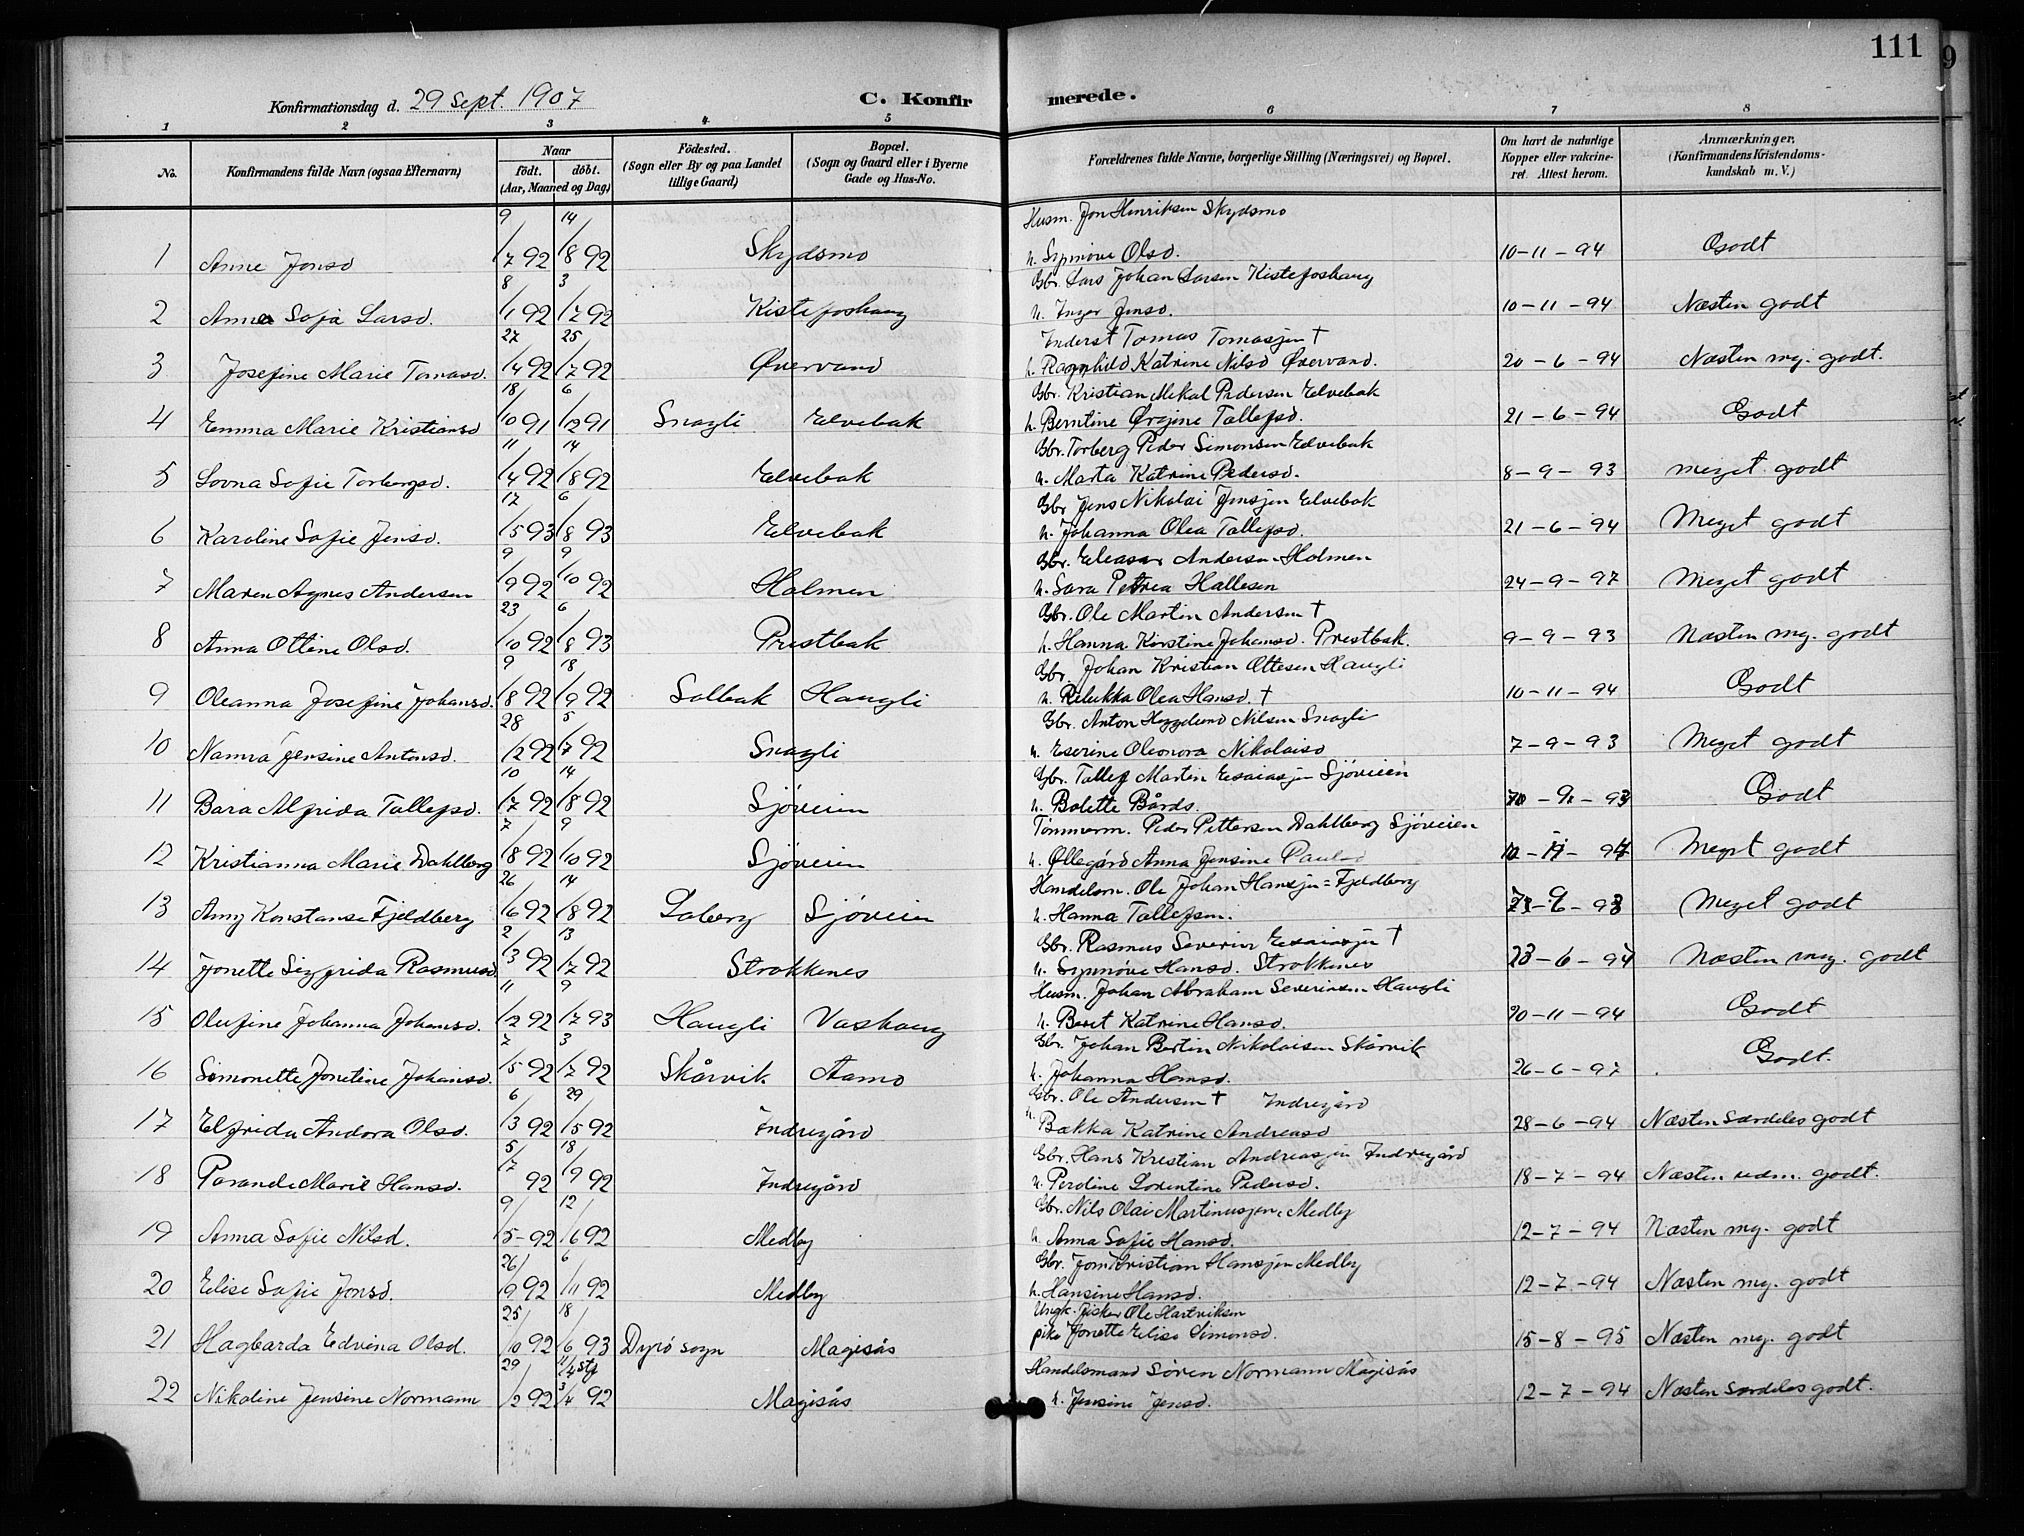 111
Konfirmationsdag d. 29 Sept. 1907
C. Konfirmerede.
1 2 3 4 5 6 7 8
No. Konfirmandens fulde Navn (ogsaa Efternavn) Naar født. døbt. (Aar, Maaned og Dag) Fødested. (Sogn eller By og paa Landet lillige Gaard) Bopæl. (Sogn og Gaard eller i Byerne Gade og Hus-No. Forældrenes fulde Navne, borgerlige Stilling (Næringsvei) og Bopæl. Om havt de naturlige Kopper eller vakcineret. Attest herom. Anmærkninger, (Konfirmandens Kristendomskundskab m. V.)
Husm. Jon Henriksen Skydsmo
1 Anne Jonsd 9/7 92 14/8 92 Skydsmo h. Synnöve Olsd. 10-11-94 Godt
Gbr. Lars Johan Larsen Kistefoshaug
2 Anna Sofia Larsd. 8/1 92 3/7 92 Kistefoshaug h. Inger Jensd. 10-11-94 Næsten godt
Inderst Tomas Tomasjen †
3 Josefine Marie Tomasd. 27/4 92 25/7 92 Øvervand h. Ragnhild Katrine Nilsd Øvervand. 20-6-94 Næsten mg. godt.
Gbr. Kristian Mikal Pedersen Elvebak
4 Emma Marie Kristiansd 18/10 91 6/12 91 Snogli Elvebak h. Berntine Ørgine Tallefsd. 21-6-94 Godt
Gbr. Torberg Peder Simonsen Elvebak
5 Lovna Sofie Torbergsd. 11/4 92 14/8 92 Elvebak h. Marta Katrine Pedersd. 8-9-93 meget godt
Gbr Jens Nikolai Jensjen Elvebak
6 Karoline Sofie Jensd. 17/5 93 6/8 93 Elvebak h. Johanna Olea Tallefsd. 21-6-94 Meget godt
Gbr. Eleasar Andersen Holmen
7 Maren Agnes Andersen 9/9 92 9/10 92 Holmen h. Sara Petrea Hallesen 24-9-97 Meget godt
Gbr. Ole Martin Andersen †
8 Anna Ottine Olsd. 23/10 92 6/8 93 Prestbak h. Hanna Kirstine Johansd. Prestbak. 9-9-93 Næsten mg. godt
Gbr. Johan Kristian Ottesen Haugli
9 Oleanna Josefine Johansd. 9/8 92 18/9 92 Solbak Haugli h. Rebukka Olea Hansd. † 10-11-94 Godt
Gbr. Anton Nilsen Snogli
10 Nanna Jensine Antonsd. 28/2 92 5/7 92 Snogli h. Eserine Oleonora Nikolaisd 7-9-93 Meget godt
Gbr. Tallef Martin Esaiasjen Sjöveien
11 Bara Alfrida Tallefsd. 10/7 92 14/8 92 Sjöveien h. Bolette Bårds. Godt
Tömmerm. Peder Pettersen Dahlberg Sjöveien
12 Kristianna Marie Dahlberg 7/8 92 9/10 92 Sjöveien h. Øllegård Anna Jensine Paulsd Meget godt
Handelsm. Ole Johan Hansjen = Fjeldberg
13 Amy Konstanse Fjeldberg 26/6 92 14/8 92 Loberg Sjöveien h. Hanna Tallefsen. Meget godt
Gbr. Rasmus Severin Esaiasjen †
14 Jonette Sigfrida Rasmusd 2/3 92 13/7 92 Strokkenes h. Synnöve Hansd. Strokkenes 23-6-94 Næsten mg. godt
Husm. Johan Abraham Severinsen Haugli
15 Olufine Johanna Johansd. 11/2 92 9/7 93 Haugli Vashaug h. Beret Katrine Hansd. 20-11-94 Godt
Gbr. Johan Bertin Nikolaisen Skårvik
16 Simonette Jonetine Johansd. 7/5 92 3/7 92 Skårvik Aamo h. Johanna Hansd. 26-6-97 Godt.
Gbr. Ole Andersen † Indregård
17 Elfrida Andora Olsd. 6/3 92 29/5 92 Indregård h. Bækka Katrine Andreasd 28-6-94 Næsten særdeles godt
Gbr. Hans Kristian Andreasjen Indregård
18 Parande Marie Hansd. 5/7 92 18/9 92 Indregård h. Perdine Lorentine Pedersd. 18-7-94 Næsten udm. godt.
Gbr. Nils Olai Martinusjen Medby
19 Anna Sofie Nilsd. 9/5-92 12/6 92 Medby h. Anna Sofie Hansd. 12-7-94 Næsten mg. godt
Gbr. Jon Kristian Hansjen Medby
20 Elise Sofie Jonsd. 26/9 92 6/11 92 Medby h. Hansine Hansd. 12-7-94 Næsten mg. godt
Ungk. fisker Ole Hartviksen
21 Hagbarda Edvina Olsd. 25/10 92 18/6 93 Dyrö sogn Magisås pike Jonette Elise Simonsd. 15-8-95 Næsten mg. godt
Handelsmand Sören Normann Magisås
22 Nikoline Jensine Normann 29/2 92 3/4 92 Magisås h. Jensine Jensd. 12-7-94 Næsten særdeles godt.